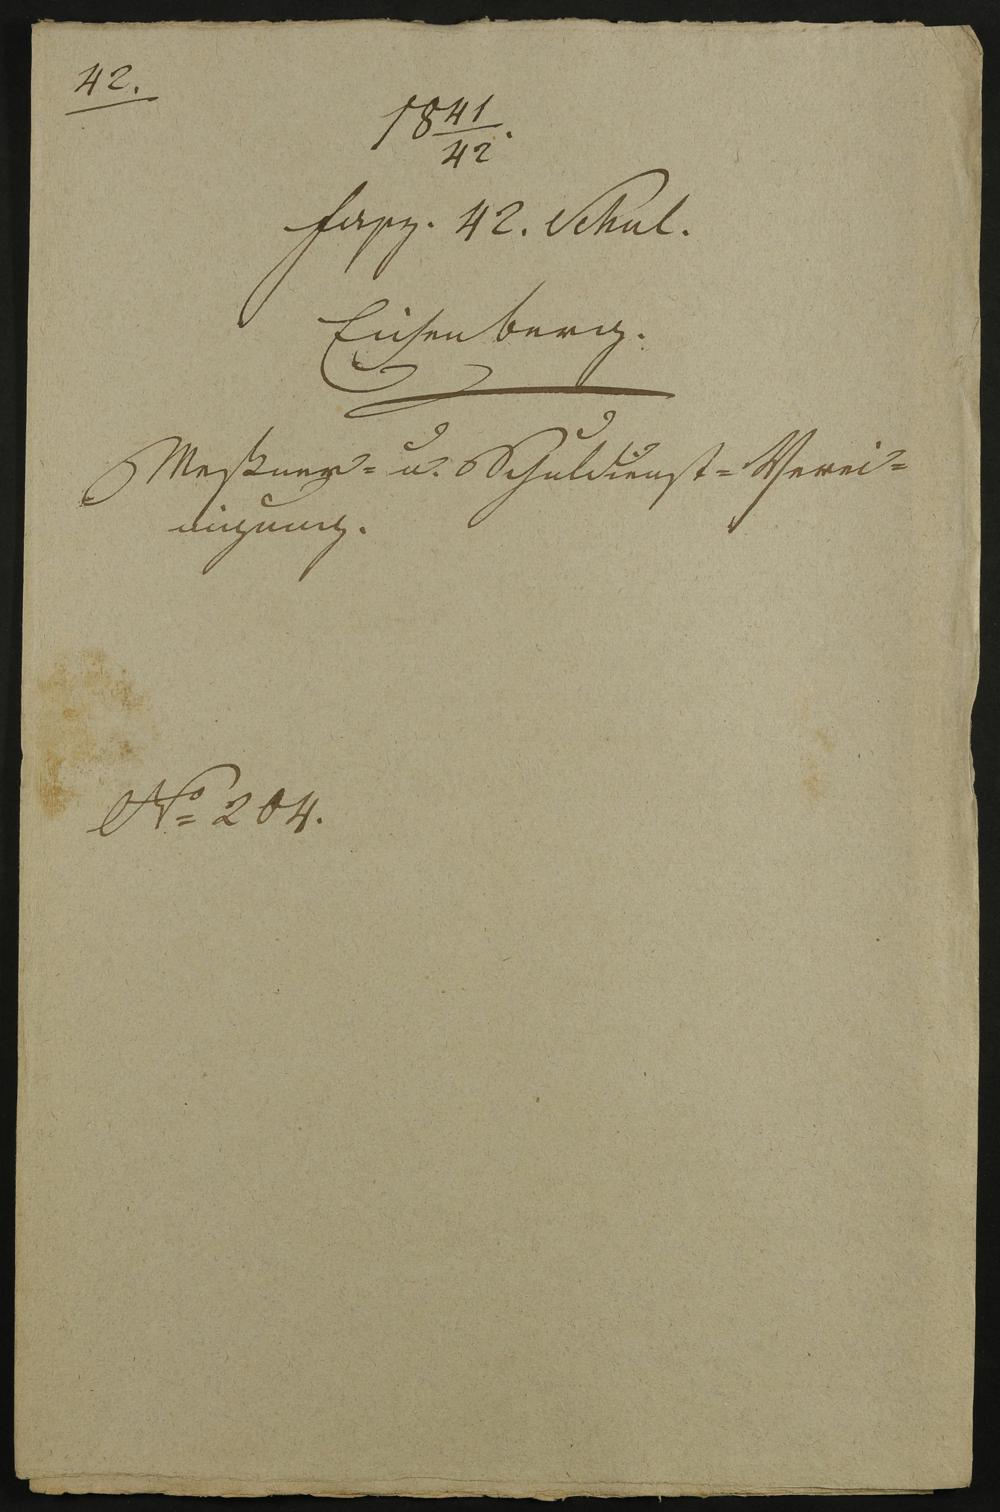 42.
18 41/42.
fasz. 42. Schul.
Eisenberg.
Meßner- u. Schuldienst-Verei-
nigung.
No 204.